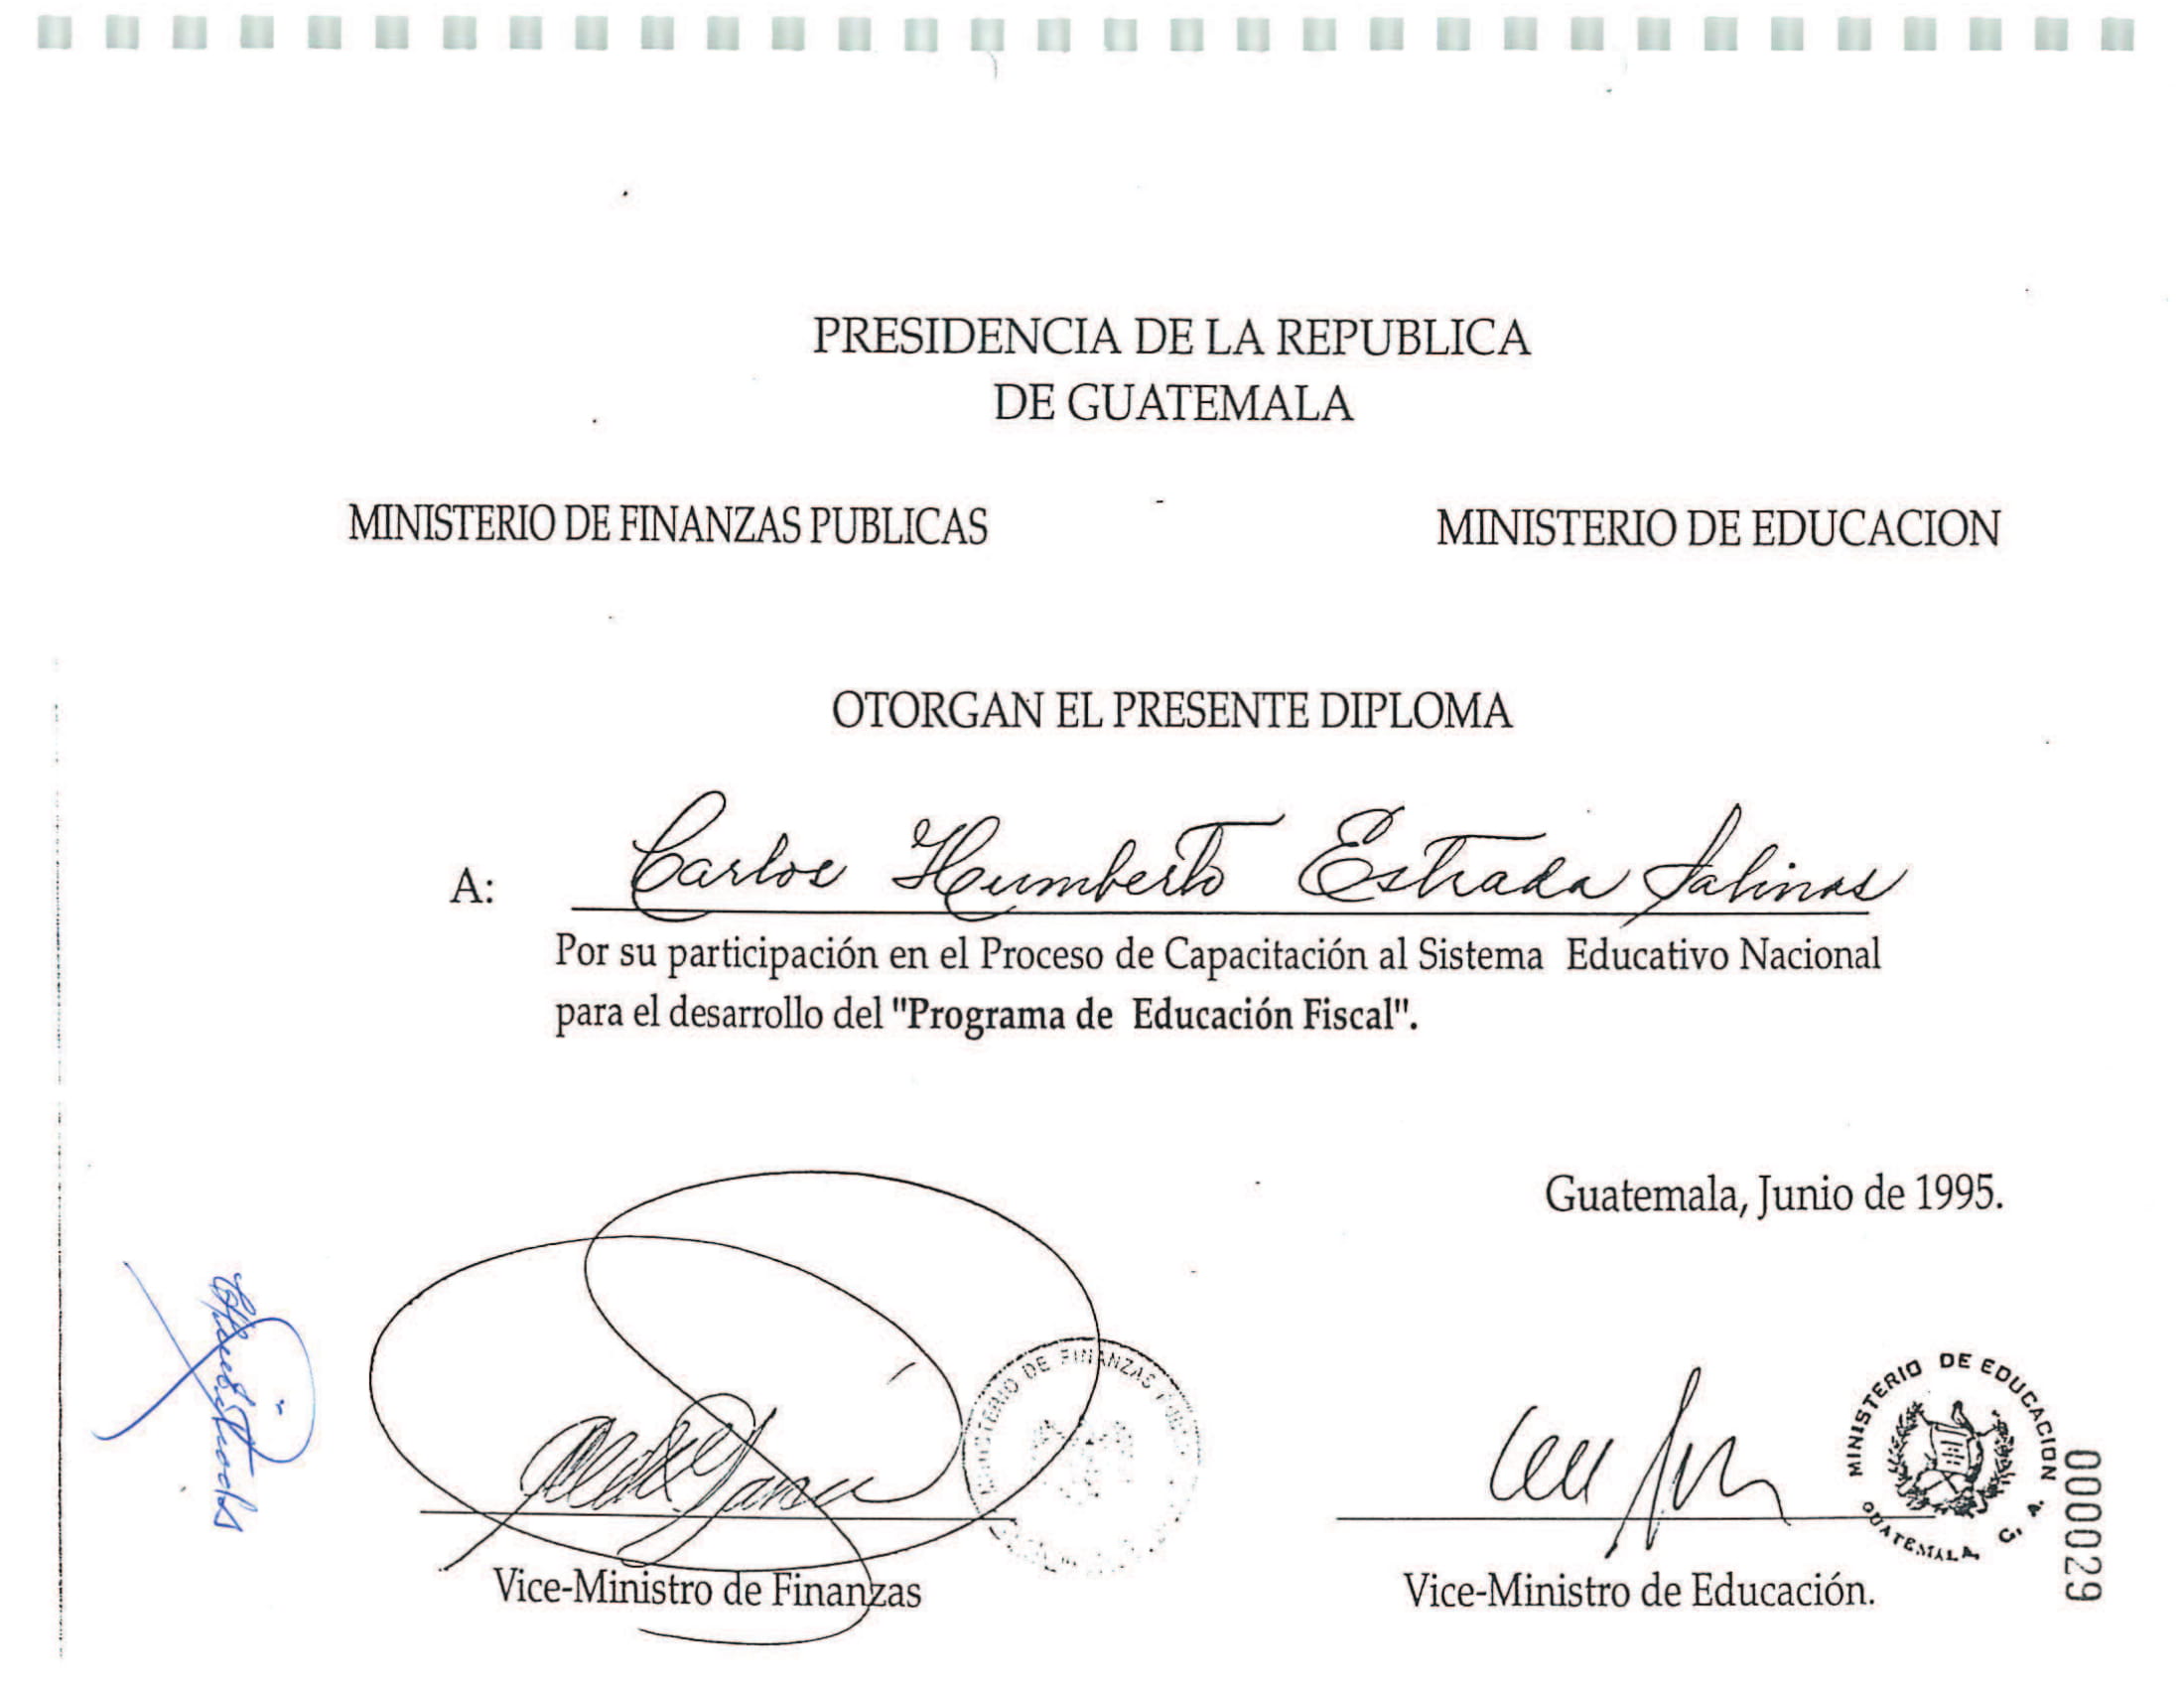 PRESIDENCIA DE LA REPUBLICA
DE GUATEMALA
MINISTERIO DE FINANZAS PUBLICAS
MINISTERIO DE EDUCACION
OTORGAN EL PRESENTE DIPLOMA
A: Carlos Humberto Estrada Salinas
Por su participación en el Proceso de Capacitación al Sistema Educativo Nacional
para el desarrollo del "Programa de Educación Fiscal".
Guatemala, Junio de 1995.
MINISTERIO DE FINANZAS
MINISTERIO DE EDUCACION
GUATEMALA, C. A.
Vice-Ministro de Finanzas
Vice-Ministro de Educación.
000029